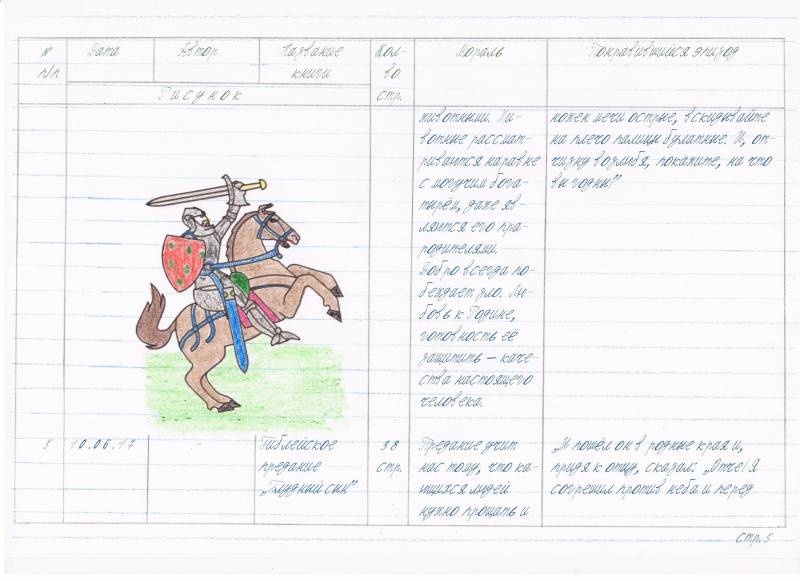 № п/п
Дата
Автор
Название
книги
Кол-
во
стр.
Мораль
Понравившийся эпизод
Рисунок
животными. Жи-
вотные рассмат-
риваются наравне
с могучим бога-
тырём, даже яв-
ляются его пра-
родителями.
Добро всегда по-
беждает зло. Лю-
бовь к Родине,
готовность её
защитить – каче-
ства настоящего
человека.
ножен мечи острые, вскидывайте
на плечо палицы булатные. И, от-
чизну возлюбя, покажите, на что
вы годны!"
5
10.06.17
-
Библейское
предание
„Блудный сын"
38
стр.
Предание учит
нас тому, что ка-
ющихся людей
нужно прощать и
„И пошёл он в родные края и,
придя к отцу, сказал: „Отче! Я
согрешил против неба и перед
стр. 5